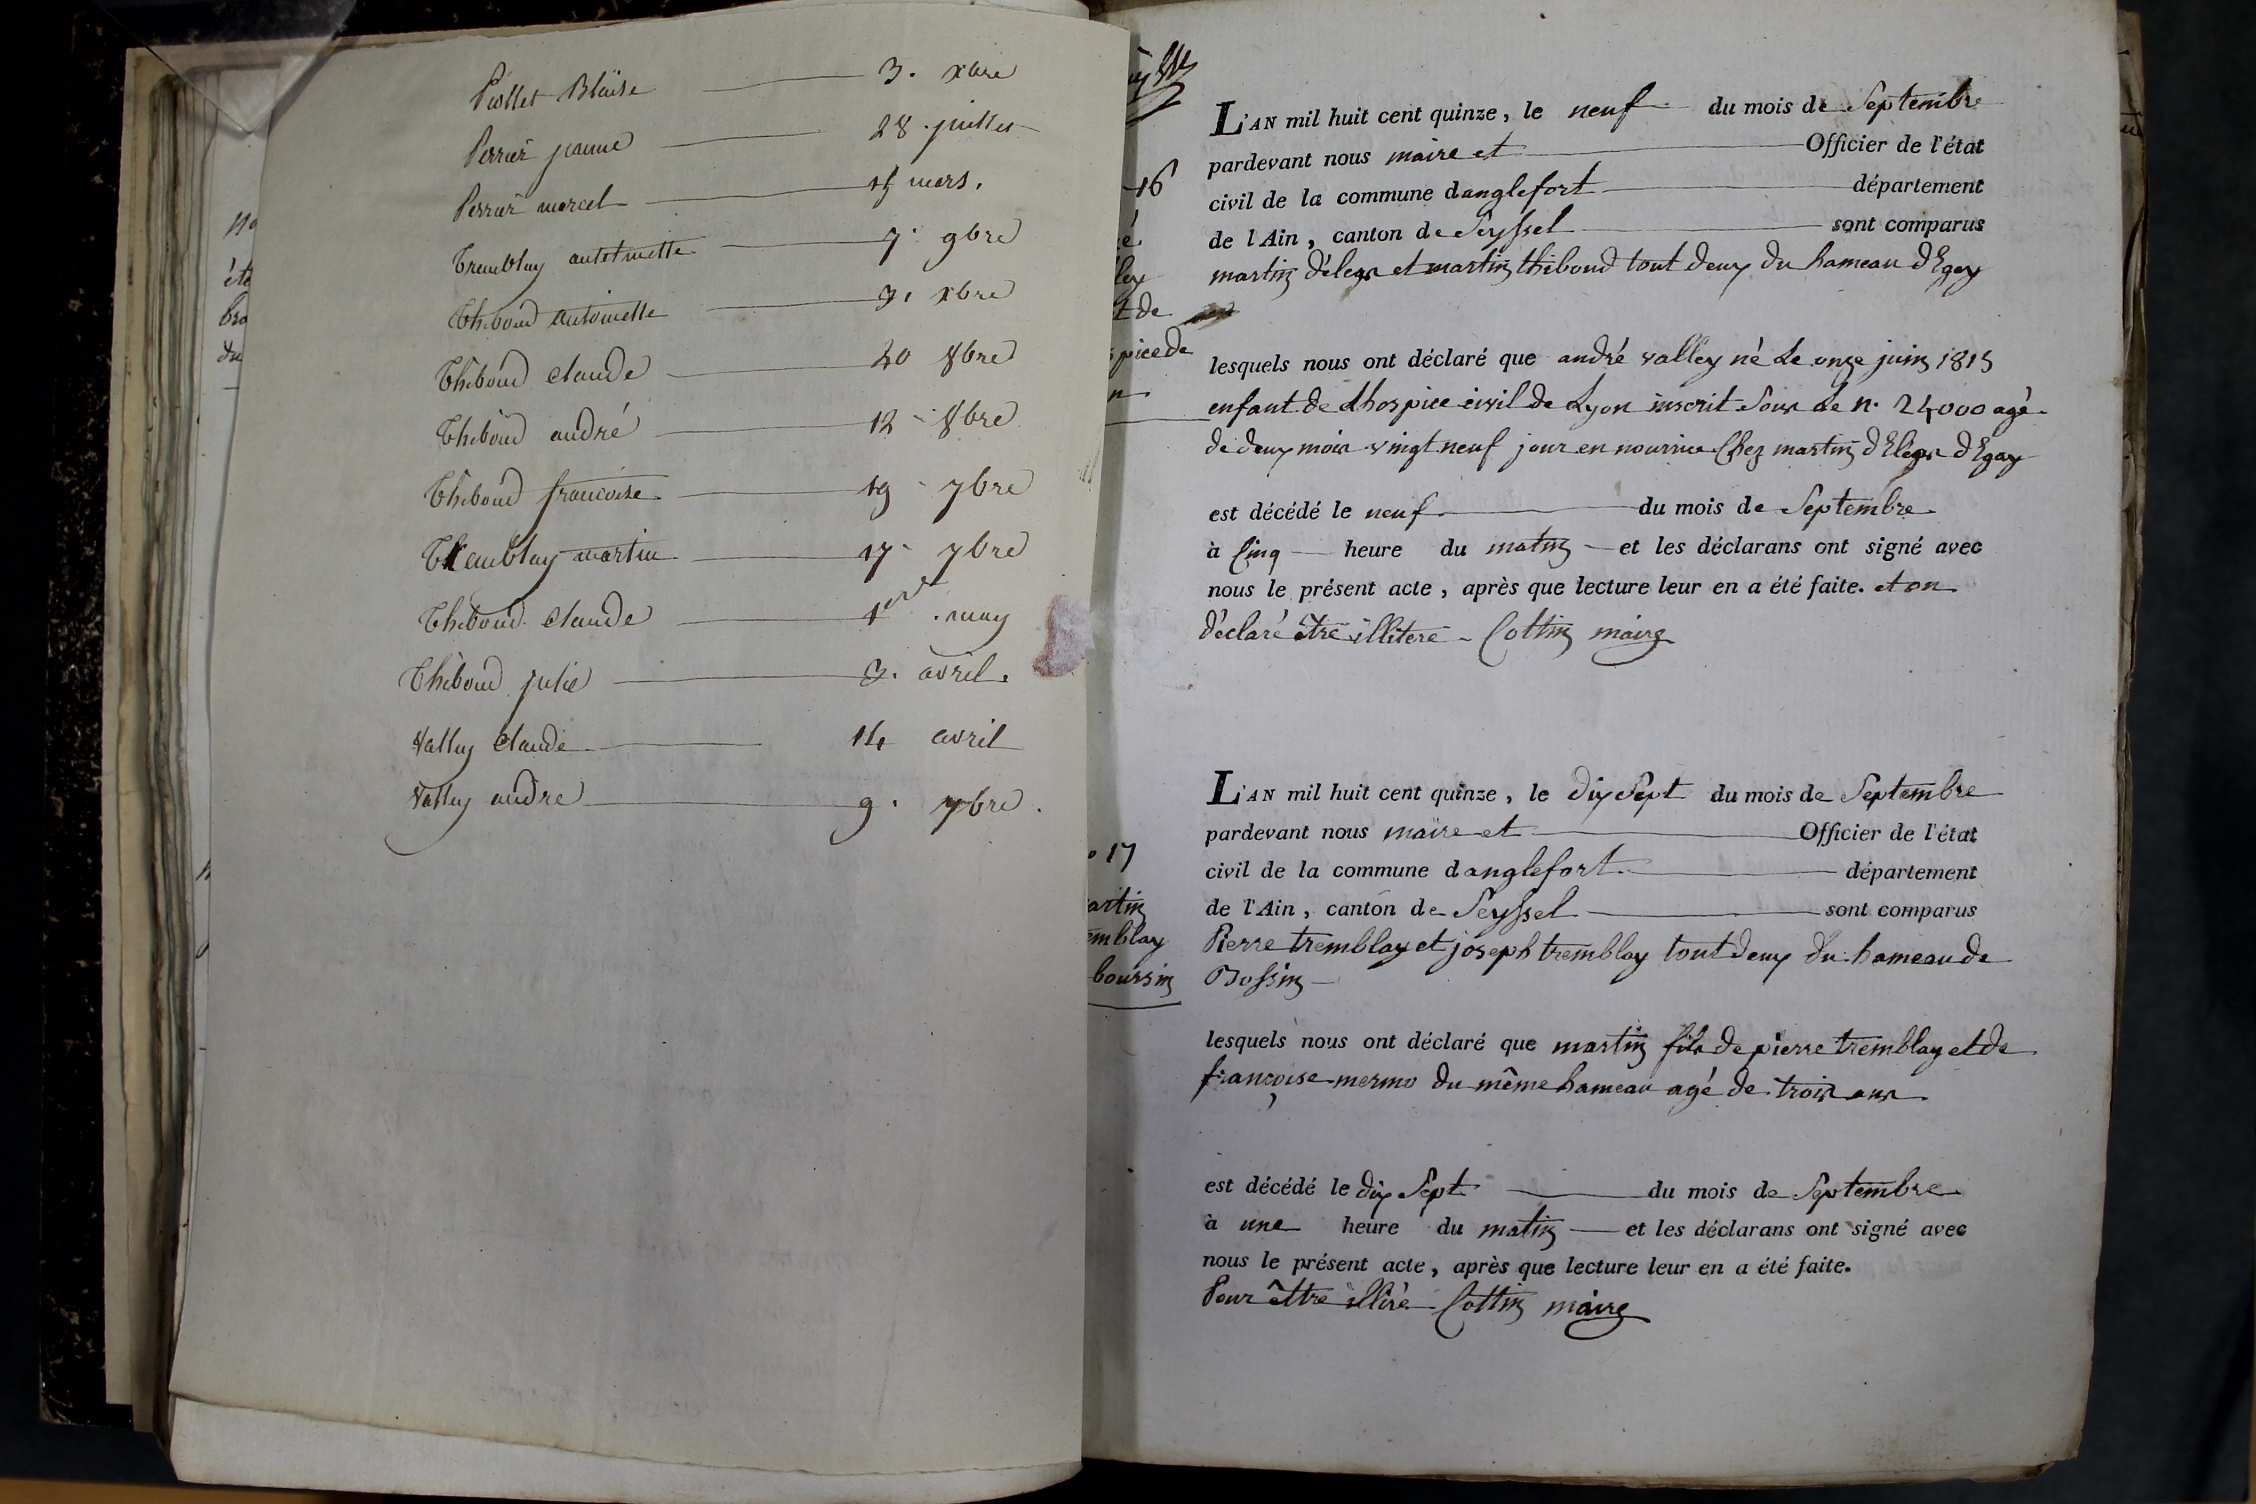 Piollet Blaise 3. xbre
Perrier jeanne 28. juillet
Perrier marcel 15 mars.
Tremblay antoinette 7. 9bre
Thiboud antoinette 9. xbre
Thiboud claude 20 8bre
Thiboud andré 12 8bre
Thiboud françoise 19 7bre
Tremblay martin 17 7bre
Thiboud claude 1er . may
Thiboud julie 3. avril.
Valley claude 14 avril
Valley andre 9. 7bre.
16
é
ley
t de
spice de
n
L'AN mil huit cent quinze, le neuf du mois de Septembre
pardevant nous maire et Officier de l'état
civil de la commune danglefort département
de l'Ain, canton de Seyssel sont comparus
martin déléas et martin thiboud tout deux du hameau dEgay
lesquels nous ont déclaré que andré valley né Le onze juin 1815
enfant de Lhospice civil de Lyon inscrit Sous Le n. 24000 agé
de deux mois vingt neuf jour en nourrice Chez martin dEléas dEgay
est décédé le neuf du mois de Septembre
à Cinq heure du matin et les déclarans ont signé avec
nous le présent acte, après que lecture leur en a été faite. et on
déclaré être illiteré Cottin maire
o 17
artin
emblay
boursin
L'AN mil huit cent quinze, le dix Sept du mois de Septembre
pardevant nous maire et Officier de l'état
civil de la commune danglefort département
de l'Ain, canton de Seyssel sont comparus
Pierre tremblay et joseph tremblay tout deux du hameau de
Bossin
lesquels nous ont déclaré que martin fils de pierre tremblay et de
françoise mermo du même hameau agé de trois ans
est décédé le dix Sept du mois de Septembre
à une heure du matin et les déclarans ont signé avec
nous le présent acte, après que lecture leur en a été faite.
Pour êttre illiré Cottin maire